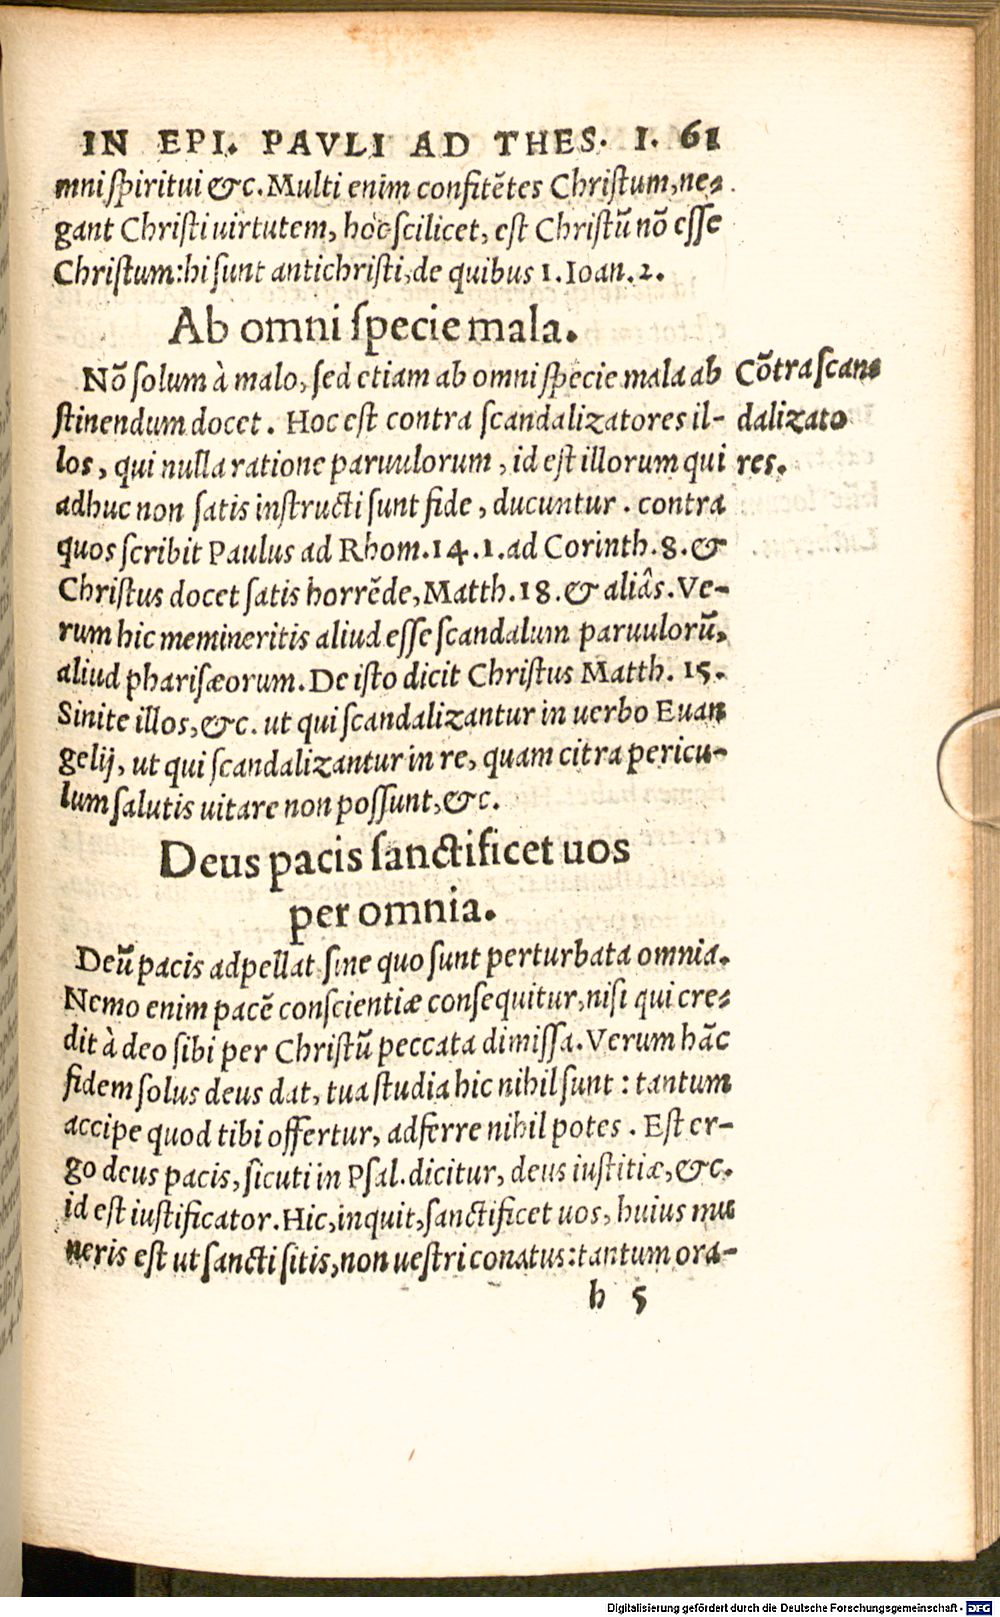 IN EPI. PAVLI AD THES. I. 61
mni ſpiritui &c. Multi enim confitētes Chriſtum, ne⸗
gant Chriſti uirtutem, hoc ſcilicet, eſt Chriſtū nō eſſe
Chriſtum: hi ſunt antichriſti, de quibus 1. Ioan. 2.
Ab omni ſpecie mala.
Nō ſolum à malo, ſed etiam ab omni ſpecie mala ab
ſtinendum docet. Hoc eſt contra ſcandalizatores il-
los, qui nulla ratione paruulorum, id eſt illorum qui
adhuc non ſatis inſtructi ſunt fide, ducuntur. contra
quos ſcribit Paulus ad Rhom. 14. 1. ad Corinth. 8. &
Chriſtus docet ſatis horrēde, Matth. 18. & aliâs. Ve-
rum hic memineritis aliud eſſe ſcandalum paruulorū,
aliud phariſæorum. De iſto dicit Chriſtus Matth. 15.
Sinite illos, &c. ut qui ſcandalizantur in uerbo Euan
gelij, ut qui ſcandalizantur in re, quam citra pericu-
lum ſalutis uitare non poſſunt, &c.
Cōtra ſcan⸗
dalizato
res.
Deus pacis ſanctificet uos
per omnia.
Deū pacis adpellat ſine quo ſunt perturbata omnia.
Nemo enim pacē conſcientiæ conſequitur, niſi qui cre⸗
dit à deo ſibi per Chriſtū peccata dimiſſa. Verum hāc
fidem ſolus deus dat, tua ſtudia hic nihil ſunt: tantum
accipe quod tibi offertur, adferre nihil potes. Eſt er-
go deus pacis, ſicuti in Pſal. dicitur, deus iuſtitiæ, &c.
id eſt iuſtificator. Hic, inquit, ſanctificet uos, huius mu
neris eſt ut ſancti ſitis, non ueſtri conatus: tantum ora-
h 5
Digitalisierung gefördert durch die Deutsche Forschungsgemeinschaft - DFG